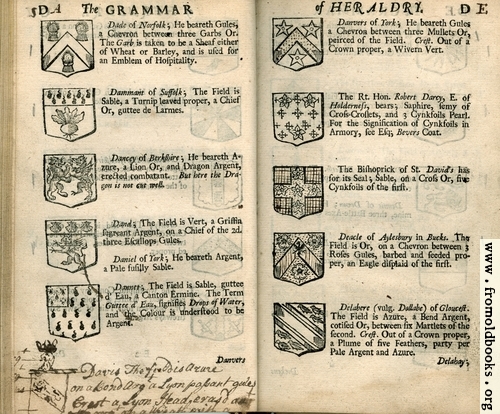 DA The GRAMMAR
Dade of Norfolk; He beareth Gules,
a Chevron between three Garbs Or.
The Garb is taken to be a Sheaf either
of Wheat or Barley, and is used for
an Emblem of Hospitality.
Dammant of Suffolk; The Field is
Sable, a Turnip leaved proper, a Chief
Or, guttee de Larmes.
Dancey of Berkshire; He beareth A-
zure, a Lion Or, and Dragon Argent,
erected combatant. But here the Dra-
gon is not cut well.
David; The Field is Vert, a Griffin
segreant Argent, on a Chief of the 2d.
three Escallops Gules.
Daniel of York; He beareth Argent,
a Pale fusilly Sable.
Dannet; The Field is Sable, guttee
d' Eau, a Canton Ermine. The Term
Guttee d' Eau, signifies Drops of Water,
and the Colour is understood to be
Argent.
Darvers
Davis The field is Azure
on a Bend Arg a Lyon passant gules
Crest a Lyon Head, erased
of HERALDRY. DE
Darvers of York; He beareth Gules
a Chevron between three Mullets Or,
peirced of the Field. Crest. Out of a
Crown proper, a Wivern Vert.
The Rt. Hon. Robert Darcy, E. of
Holderness, bears; Saphire, semy of
Cross-Croslets, and 3 Cynkfoils Pearl.
For the Signification of Cynkfoils in
Armory, see Esq; Bevers Coat.
The Bishoprick of St. David's has
for its Seal; Sable, on a Cross Or, five
Cynkfoils of the first.
Deacle of Aylesbury in Bucks. The
Field is Or, on a Chevron between 3
Roses Gules, barbed and seeded pro-
per, an Eagle displaid of the first.
Delabere (vulg. Dullabe) of Gloucest.
The Field is Azure, a Bend Argent,
cotised Or, between six Martlets of the
second. Crest. Out of a Crown proper,
a Plume of five Feathers, party per
Pale Argent and Azure.
Delahay;
www.fromoldbooks.org